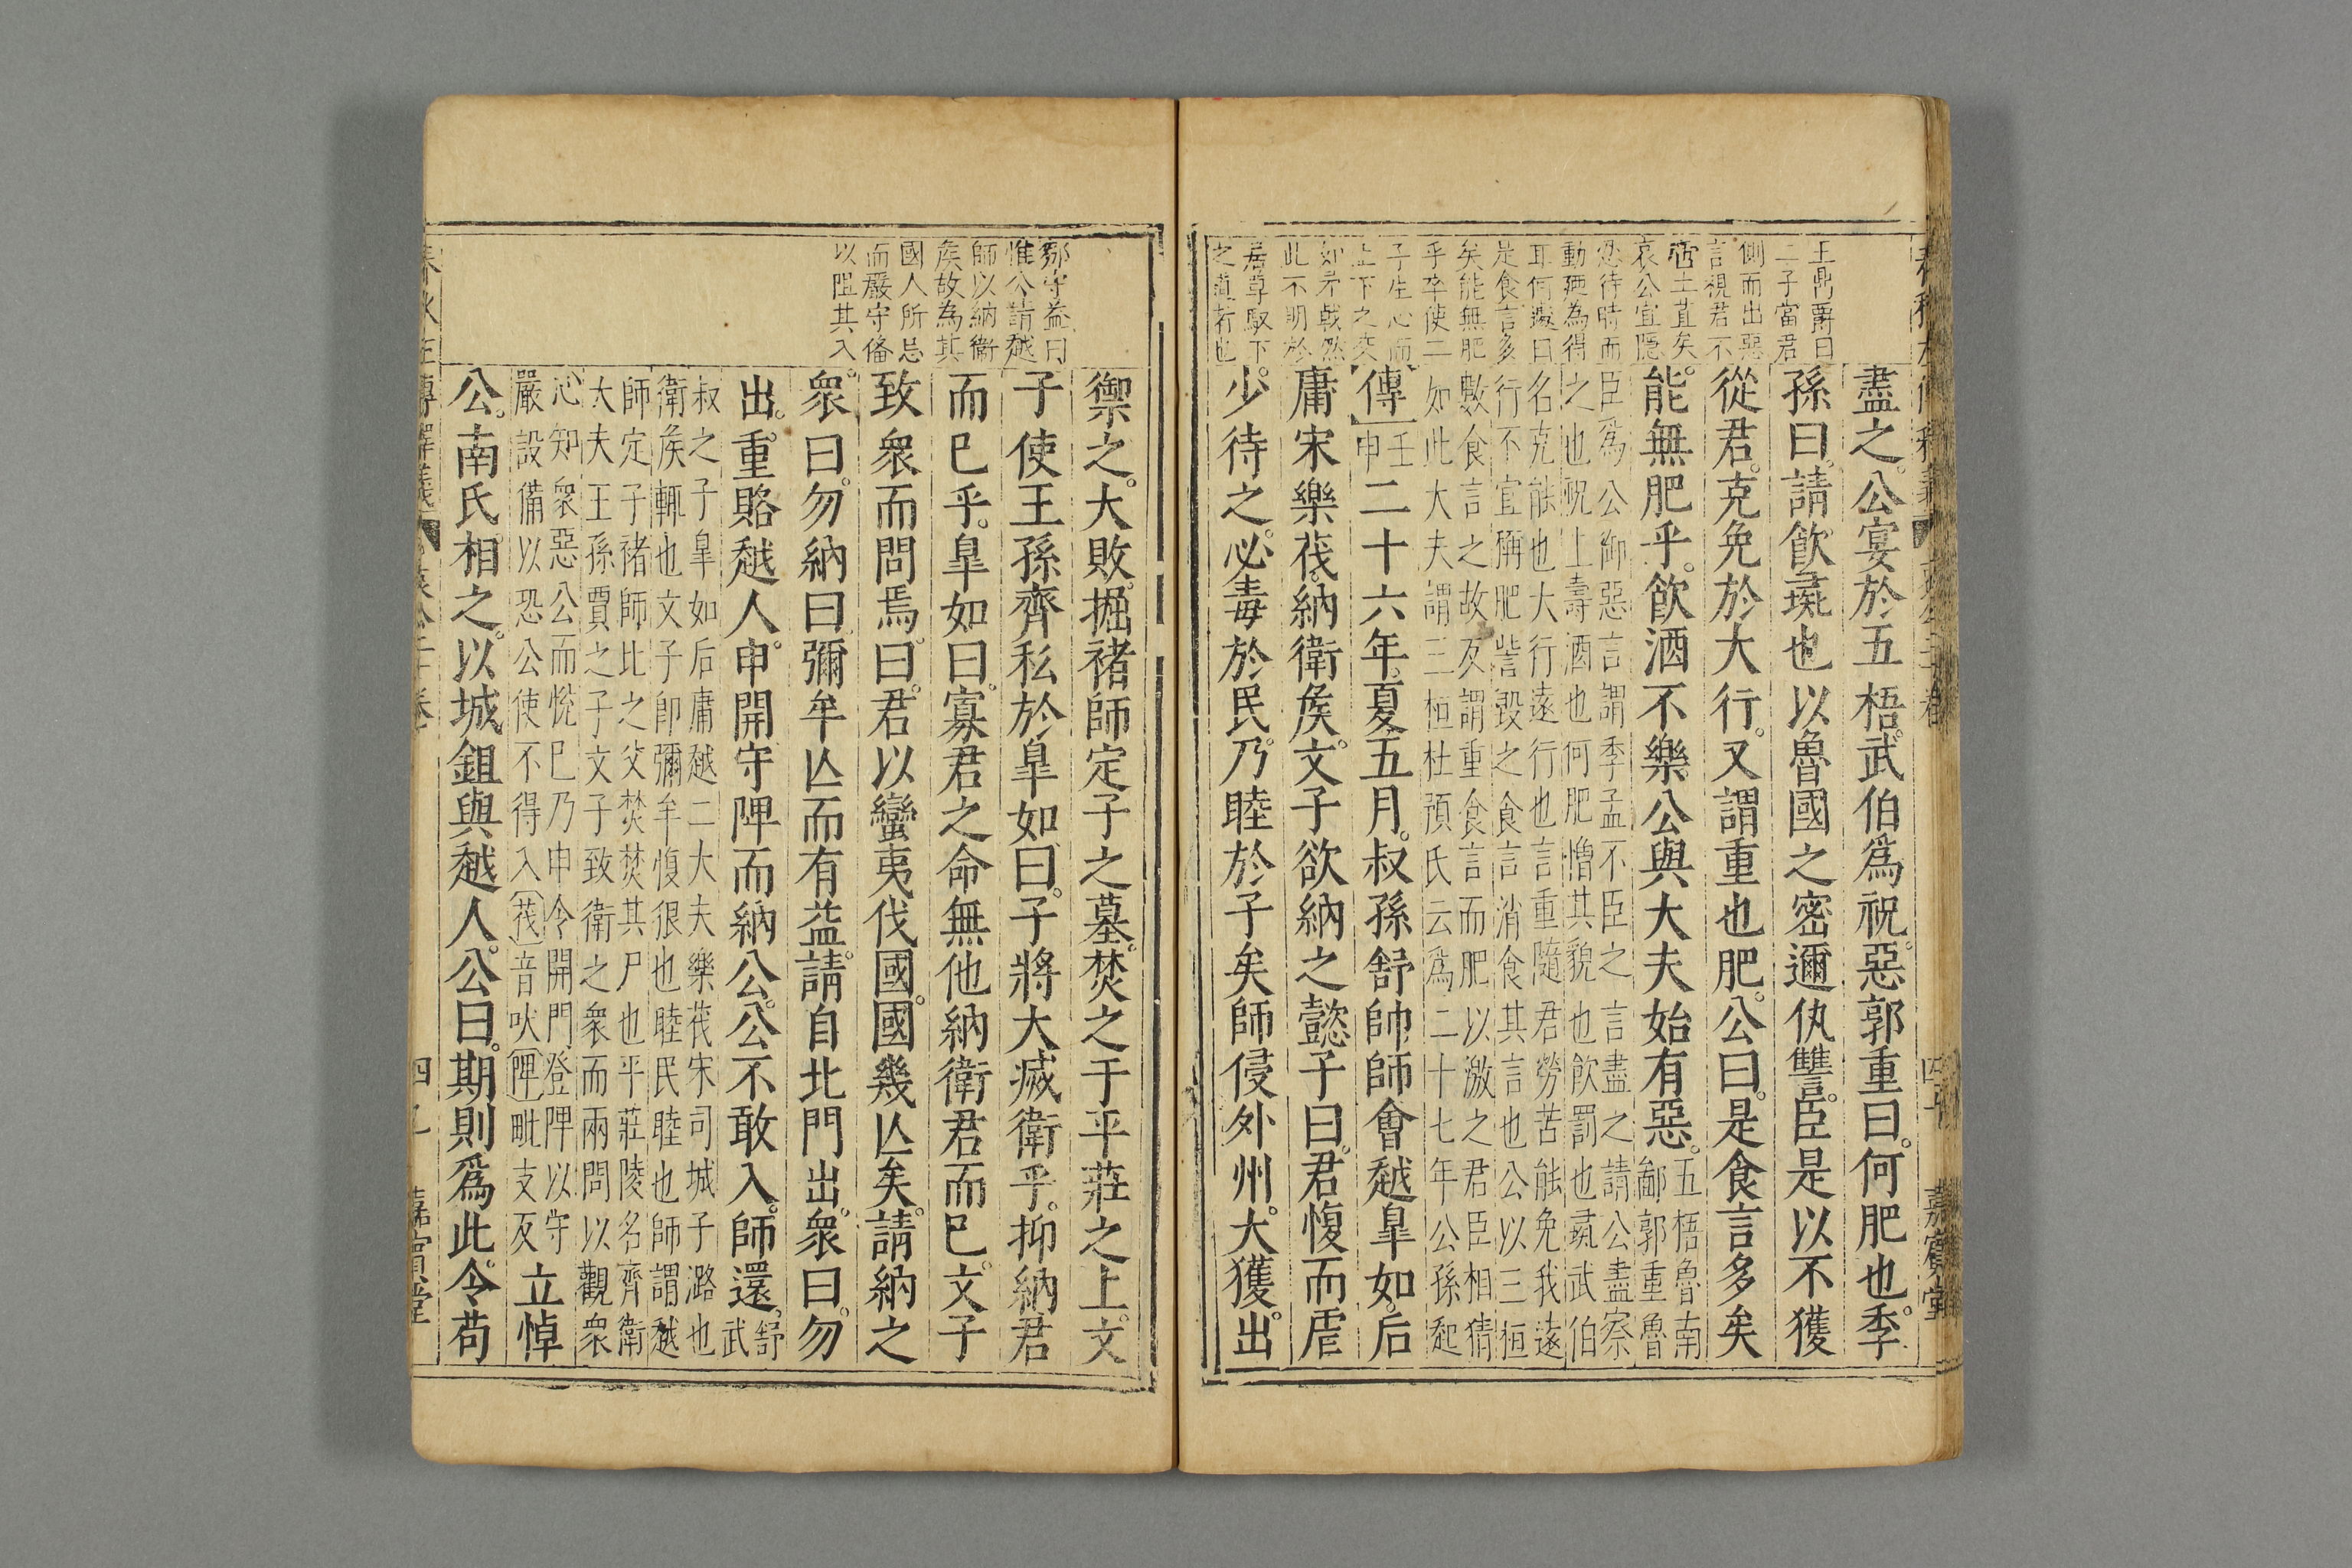 王鼎爵曰
二子當君
側而出惡
言視君不
啻土苴矣
哀公宜隱
忍待時而
動廼為得
耳何遽曰
是食言多
矣能無肥
乎卒使二
子生心而
上下之交
如矛戟然
此不明於
居尊馭下
之道者也
盡之公宴於五梧武伯爲祝惡郭重曰何肥也季
孫曰請飮彘也以魯國之密邇仇讐臣是以不獲
從君克免於大行又謂重也肥公曰是食言多矣
能無肥乎飮酒不樂公與大夫始有惡
五梧魯南
鄙郭重魯
臣爲公御惡言謂季孟不臣之言盡之請公盡察
之也祝上壽酒也何肥憎其貌也飮罰也彘武伯
名克能也大行遠行也言重隨君勞苦能免我遠
行不宜稱肥訾毀之食言消食其言也公以三桓
數食言之故反謂重食言而肥以激之君臣相猜
如此大夫謂三桓杜預氏云爲二十七年公孫起
傳
壬
申
二十六年夏五月叔孫舒帥師會越皐如后
庸宋樂茷納衛侯文子欲納之懿子曰君愎而虐
少待之必毒於民乃睦於子矣師侵外州大獲出
春秋左傳釋義
四十
嘉賓堂
鄒守益曰
惟公請越
師以納衛
侯故為其
國人所忌
而嚴守俻
以阻其入
禦之大敗掘褚師定子之墓焚之于平莊之上文
子使王孫齊私於皐如曰子將大滅衛乎抑納君
而已乎皐如曰寡君之命無他納衛君而已文子
致衆而問焉曰君以蠻夷伐國國幾亾矣請納之
衆曰勿納曰彌牟亾而有益請自北門出衆曰勿
出重賂越人申開守陴而納公公不敢入師還
舒
武
叔之子皐如后庸越二大夫樂茷宋司城子潞也
衛侯輒也文子卽彌牟愎很也睦民睦也師謂越
師定子褚師比之父焚焚其尸也平莊陵名齊衛
大夫王孫賈之子文子致衛之衆而兩問以觀衆
心知衆惡公而悅巳乃申令開門登陴以守
嚴設備以恐公使不得入茷音吠陴毗支反
立悼
公南氏相之以城鉏與越人公曰期則爲此令苟
春秋左傳釋義
嘉賓堂